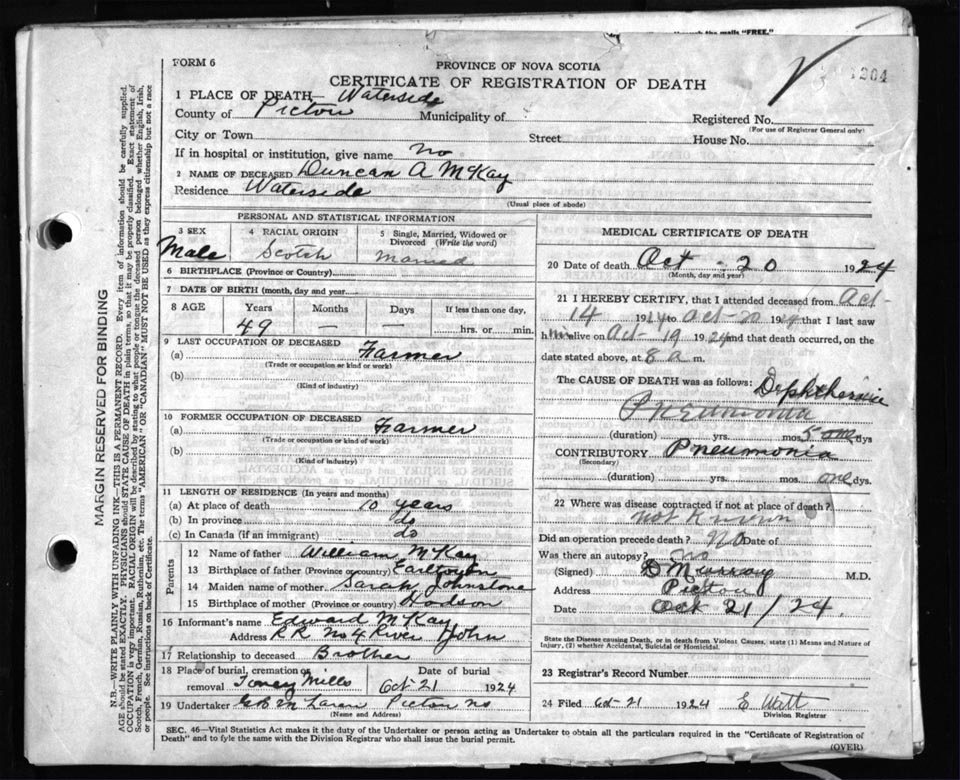 through the mails "FREE."
1204
FORM 6
PROVINCE OF NOVA SCOTIA
CERTIFICATE OF REGISTRATION OF DEATH
1 PLACE OF DEATH— Waterside
County of Picton Municipality of
Registered No.
(For use of Registrar General only)
City or Town Street House No.
If in hospital or institution, give name No
2 NAME OF DECEASED Duncan A McKay
Residence Waterside
(Usual place of abode)
MARGIN RESERVED FOR BINDING
N.B.—WRITE PLAINLY WITH UNFADING INK—THIS IS A PERMANENT RECORD. Every item of information should be carefully supplied.
AGE should be stated EXACTLY. PHYSICIANS should STATE CAUSE OF DEATH in plain terms, so that it may be properly classified. Exact statement of
OCCUPATION is very important. RACIAL ORIGIN will be described by stating to what people or tongue the deceased person belonged whether English, Irish,
Scotch, French, German, Russian, Ruthenian, etc. The terms "AMERICAN" or "CANADIAN" MUST NOT BE USED as they express citizenship but not a race
or people. See instructions on back of Certificate.
PERSONAL AND STATISTICAL INFORMATION
3 SEX
Male
4 RACIAL ORIGIN
Scotch
5 Single, Married, Widowed or
Divorced (Write the word)
Married
6 BIRTHPLACE (Province or Country)
7 DATE OF BIRTH (month, day and year)
8 AGE Years Months Days If less than one day,
49 — — hrs. or min.
9 LAST OCCUPATION OF DECEASED
(a) Farmer
(Trade or occupation or kind of work)
(b)
(Kind of industry)
10 FORMER OCCUPATION OF DECEASED
(a) Farmer
(Trade or occupation or kind of work)
(b)
(Kind of industry)
11 LENGTH OF RESIDENCE (In years and months)
(a) At place of death 10 years
(b) In province do
(c) In Canada (if an immigrant) do
Parents
12 Name of father William McKay
13 Birthplace of father (Province or country) Earltown
14 Maiden name of mother Sarah Johnstone
15 Birthplace of mother (Province or country) Hodson
16 Informant's name Edward McKay
Address R R No 4 River John
17 Relationship to deceased Brother
18 Place of burial, cremation or
removal Toney Mills
Date of burial
Oct 21 1924
19 Undertaker Picton NS
(Name and Address)
MEDICAL CERTIFICATE OF DEATH
20 Date of death Oct - 20 1924
(Month, day and year)
21 I HEREBY CERTIFY, that I attended deceased from Oct-
14 1924 to Oct 20 1924 that I last saw
him alive on Oct 19 1924 and that death occurred, on the
date stated above, at 8 a m.
The CAUSE OF DEATH was as follows:
Pneumonia
(duration) yrs. mos. dys
CONTRIBUTORY Pneumonia
(Secondary)
(duration) yrs. mos. one dys.
22 Where was disease contracted if not at place of death?
Not Known
Did an operation precede death? No Date of
Was there an autopsy? No
(Signed) D Murray M.D.
Address Picton
Date Oct 21/24
State the Disease causing Death, or in death from Violent Causes, state (1) Means and Nature of
Injury, (2) whether Accidental, Suicidal or Homicidal.
23 Registrar's Record Number
24 Filed Oct 21 1924 E Watt
Division Registrar
SEC. 46—Vital Statistics Act makes it the duty of the Undertaker or person acting as Undertaker to obtain all the particulars required in the "Certificate of Registration of
Death" and to fyle the same with the Division Registrar who shall issue the burial permit.
(OVER)